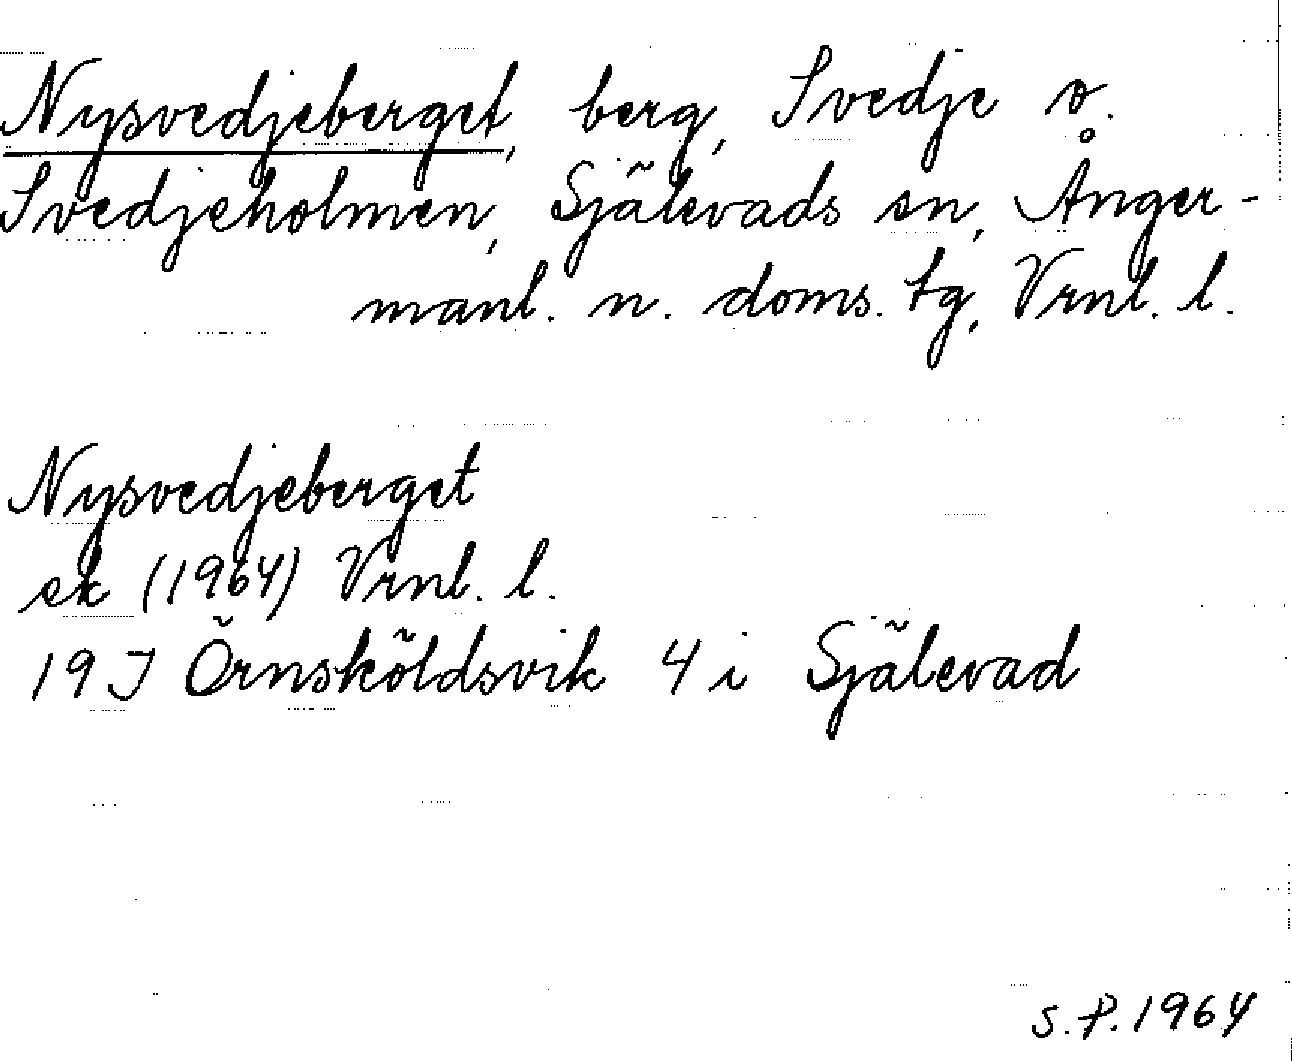 Nysvedjeberget, berg, Svedje o.
Svedjeholmen, Själevads sn, Ånger-
manl. n. doms. tg, Vrnl. l.
Nysvedjeberget
ek (1964) Vrnl. l.
19J Örnsköldsvik 4 i Själevad
S.P. 1964